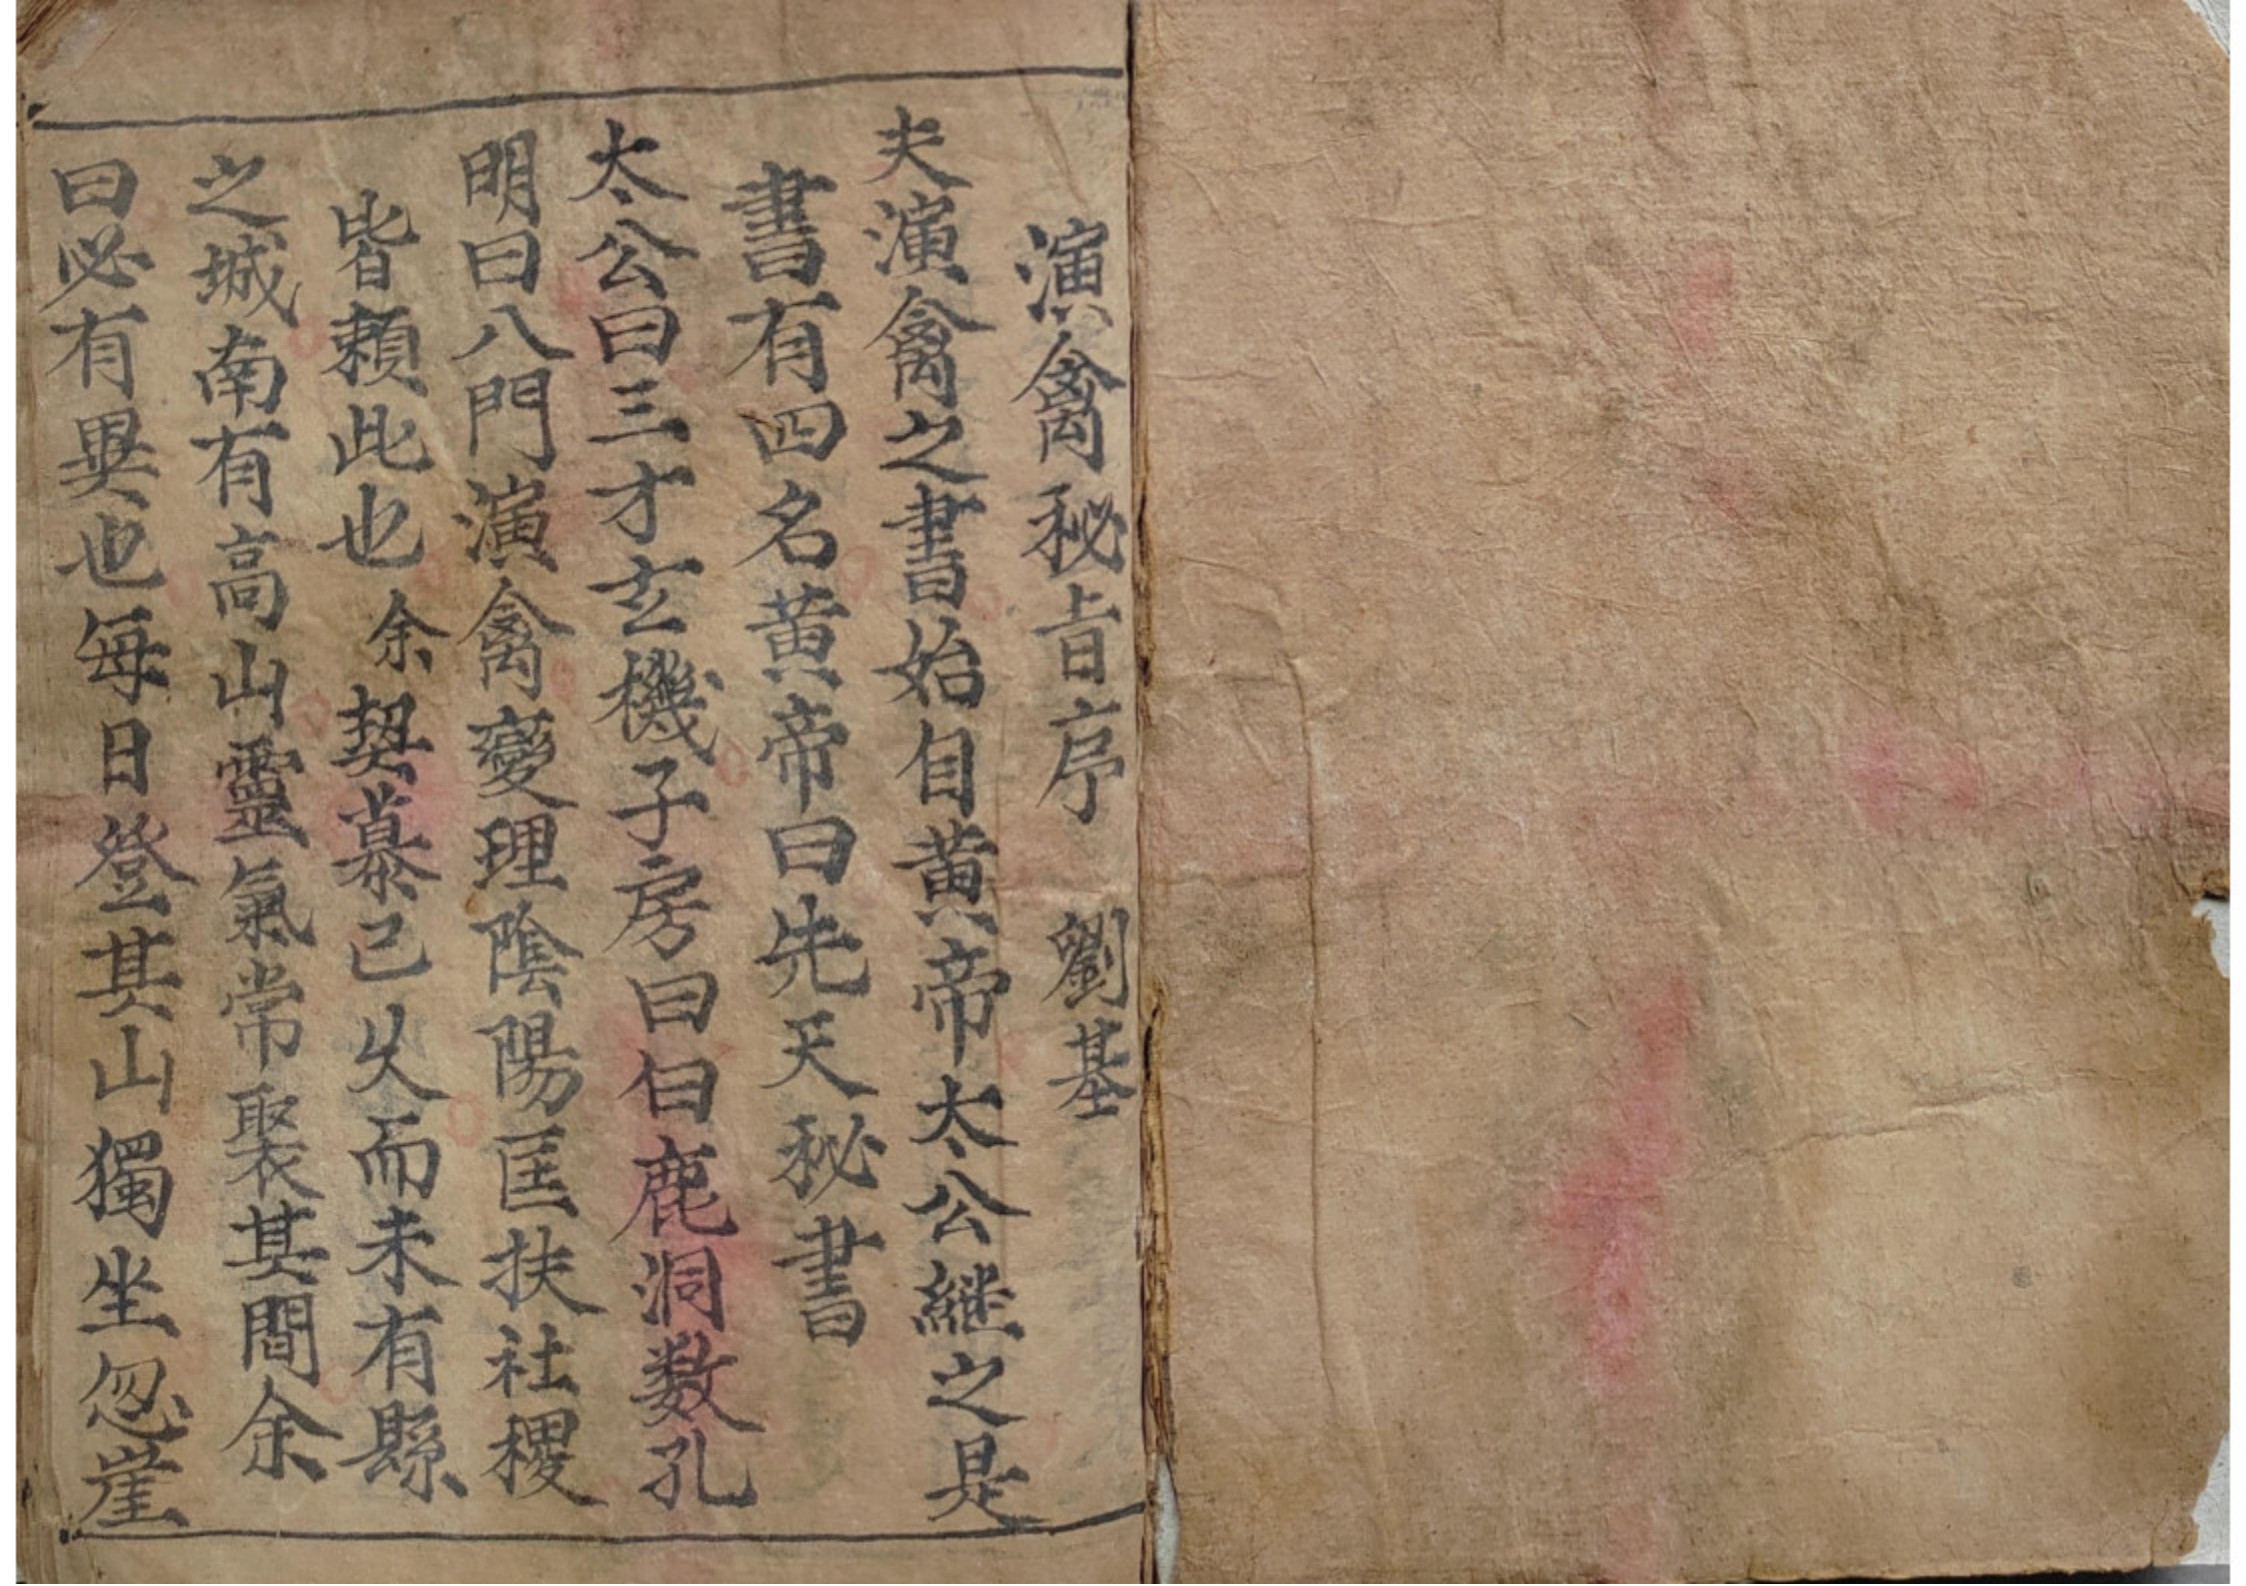 演禽秘旨序 劉基
夫演禽之書始自黃帝太公繼之是
書有四名黃帝曰先天秘書
太公曰三才玄機子房曰白鹿洞数孔
明曰八門演禽變理陰陽匡扶社稷
皆賴此也余契慕己久而未有縣
之城南有高山靈氣常聚其間余
曰必有異也每日登其山獨坐忽崖